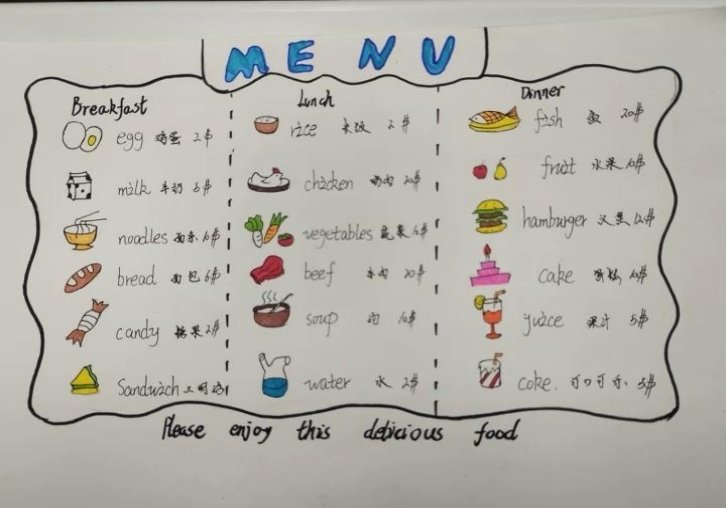 MENU
Breakfast
egg 鸡蛋 2$
milk 牛奶 5$
noodles 面条 10$
bread 面包 6$
candy 糖果 2$
Sandwich 三明治
Lunch
rice 米饭 2$
chicken 鸡肉 20$
vegetables 蔬菜
beef 牛肉 30$
soup 10$
water 水 2$
Dinner
fish 鱼 20$
fruit 水果 10$
hamburger 汉堡 12$
cake 蛋糕 10$
yuice 果汁 5$
coke. 可口可乐. 5$
Please enjoy this debicious food